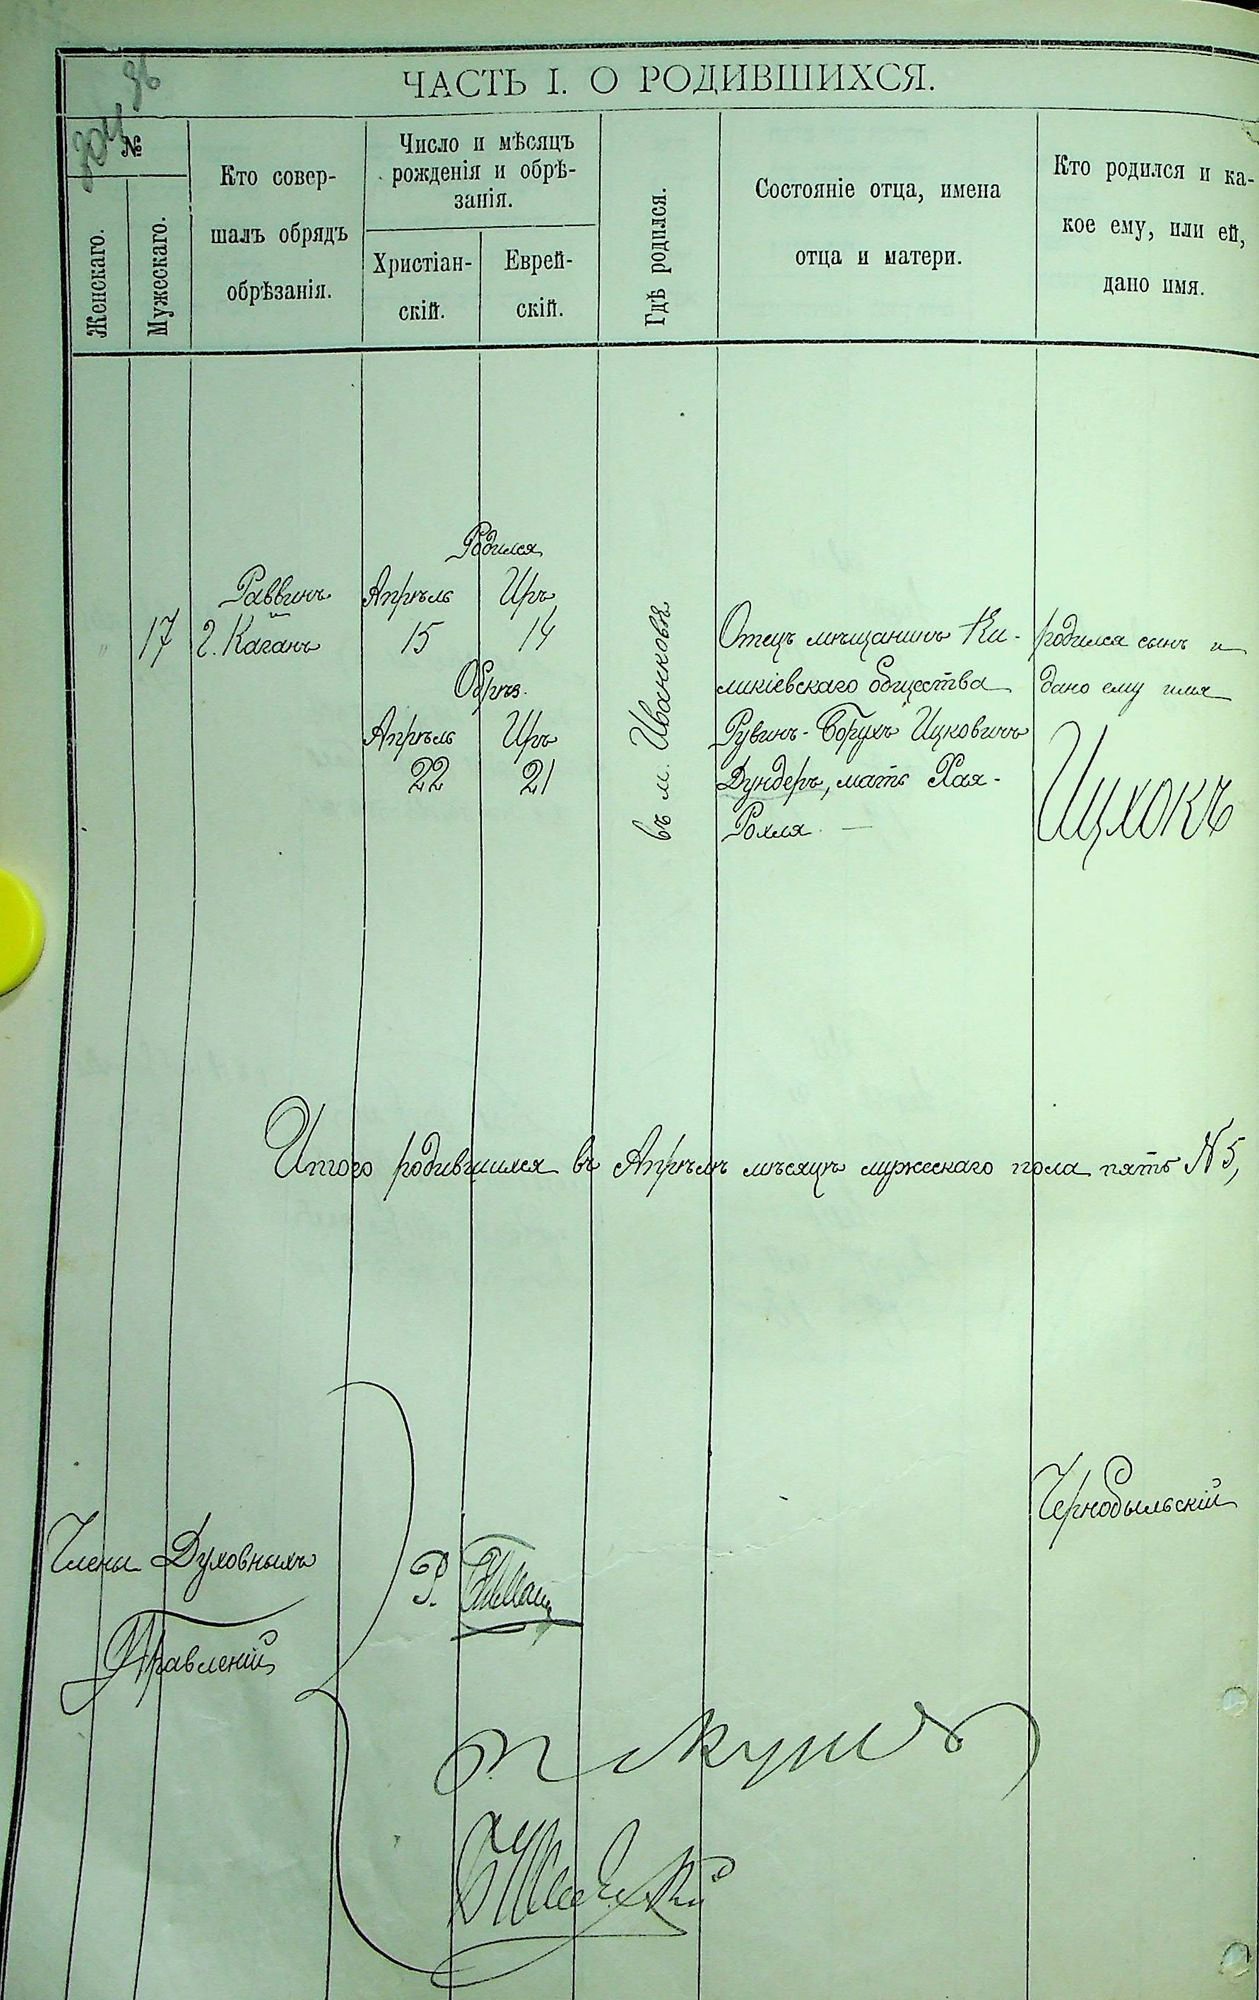 96
204
ЧАСТЬ I. О РОДИВШИХСЯ.
№
Женскаго.
Мужескаго.
Кто совер-
шалъ обрядъ
обрѣзанія.
Число и мѣсяцъ
рожденія и обрѣ-
занія.
Христіан-
скій.
Еврей-
скій.
Гдѣ родился.
Состояніе отца, имена
отца и матери.
Кто родился и ка-
кое ему, или ей,
дано имя.
"
17
Раввинъ
Г. Каганъ
Родился
Апрѣль Иръ
15 14
Обрѣз.
Апрѣль Иръ
22 21
въ м. Иванковѣ
Отецъ мѣщанинъ
общества
Рувинъ-Борухъ Ицковичъ
Дундеръ, мать Хая-
Рохля —
родился сынъ и
дано ему имя
Ицхокъ
Итого родившихся въ Апрѣлѣ мѣсяцѣ мужескаго пола пять № 5,
Чернобыльскій
Члены Духовныхъ
Правленій
Р.